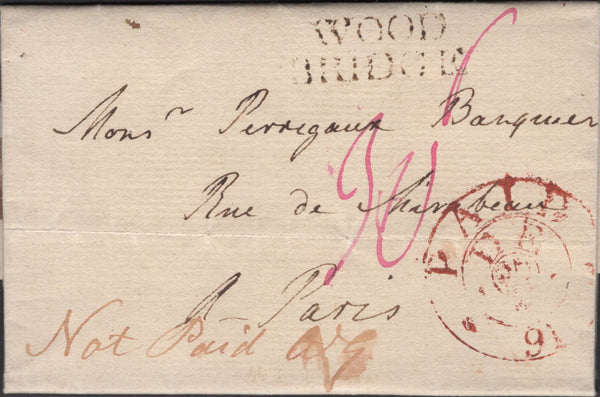 WOOD
BRIDGE
Monsr Perregaux Banquier
Rue de Mirabeau
A Paris
Not Paid
PAID
9